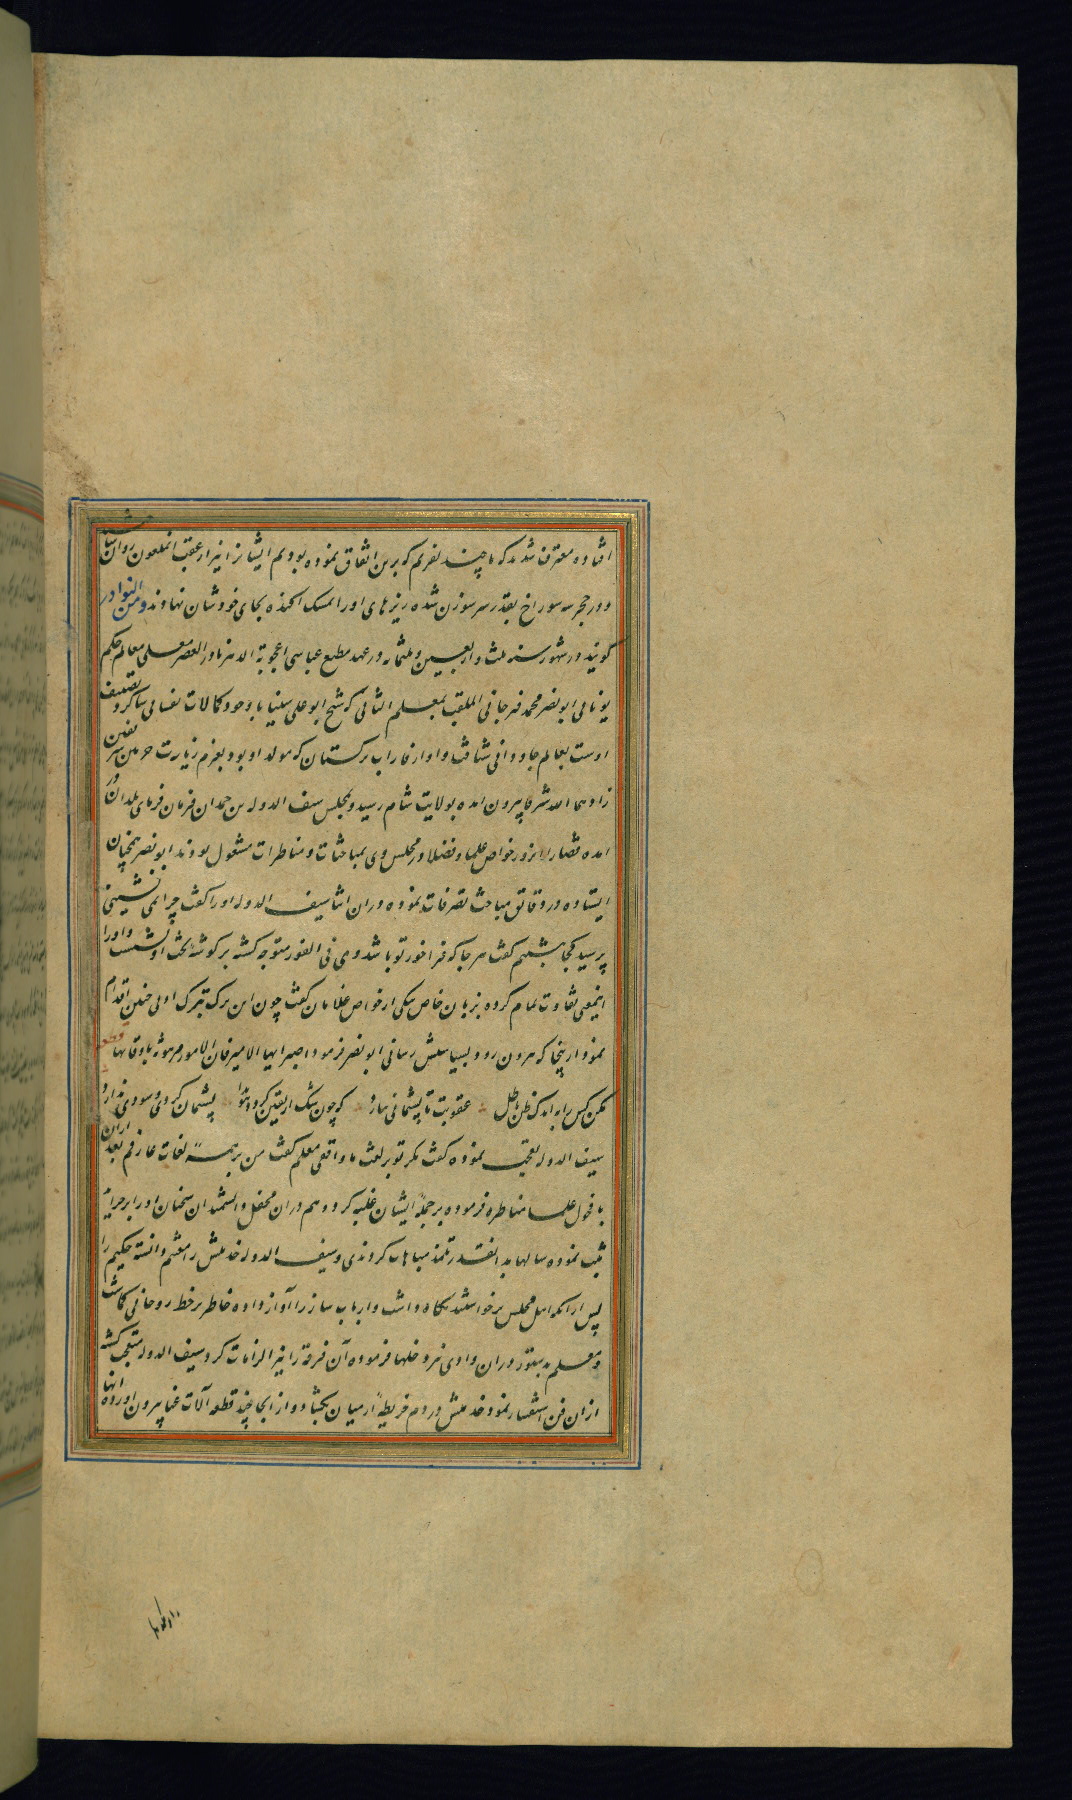 افتاده معترف شدند که ما چند نفریم که برین اتفاق نموده بودیم ایشانرا نیز از عقب آنملعون روان ساختند
و در حجر سه سوراخ بقدر سر سوزن شده ریزهای او را لمسک اتخذه بجای خود شان نهادند و من النوادر
گویند در شهور سنه ثلث و اربعین و ثلثمائه در عهد مطیع عباسی اعجوبة الدهر نادر العصر معلی معالم حکم
یونانی ابو نصر محمد فرجانی الملقب بمعلم الثانی که شیخ ابو علی سینا با وجود کمالات نفسانی شاکرد تصنیف
اوست بعالم جاودانی شتافت و او از فاراب ترکستان که مولد او بود بعزم زیارت حرمین شریفین
زادهما الله شرفا بیرون امده بولایت شام رسید و بمجلس سیف الدوله بن حمدان فرمان فرمای بلدان در
امده قضا را انروز خواص علما و فضلا در مجلس وی بمباحثات و مناظرات مشغول بودند ابو نصر همچنان
ایستاده در دقائق مباحث تصرفات نموده در ان اثنا سیف الدوله او را گفت چرا نمی نشینی
پرسید کجا بنشینم گفت هر جا که فراخور تو باشد وی فی الفور متوجه کشته بر کوشه تخت او نشست و او را
اینمعنی تفاوت تمام کرده بزبان خاص بیکی از خواص غلامان گفت چون این ترک ترک اولی چنین اقدام
نمود از پنجا که بیرون رود بسیاستش رسانی ابو نصر فرمود اصبر ایها الامیر فان الامور مرهونة باوقاتها قطعه
مکن کس را به اندک ظن باطل عقوبت تا پشیمانی نیارد که چون شک از یقین کردد هویدا پشیمان کردی و سودی ندارد
سیف الدوله تعجب نموده گفت مکر تو بر لغت ما واقفی معلم گفت من بر همه لغات عارفم بعد ازان
با فحول علما مناظره فرموده بر جمله ایشان غلبه کرد و هم در ان محفل دانشمندان سخنان او را بر جراید
ثبت نموده سالها بد انقدر تلمذ مباهات کردندی و سیف الدوله خدمتش را مغتنم دانسته حکیم را
پس از انکه اهل مجلس برخواستند نکاه داشت و ارباب ساز را آواز داده خاطر بر خط روحانی کماشت
و معلم بدستور در ان وادی نیز دخلها فرموده آن فرقه را نیز الزامات کرد سیف الدوله متعجب کشته
از ان فن استفسار نمود خدمتش در دم خریطه از میان بکشاد و از انجا چند قطعه آلات غنا بیرون اورده انها